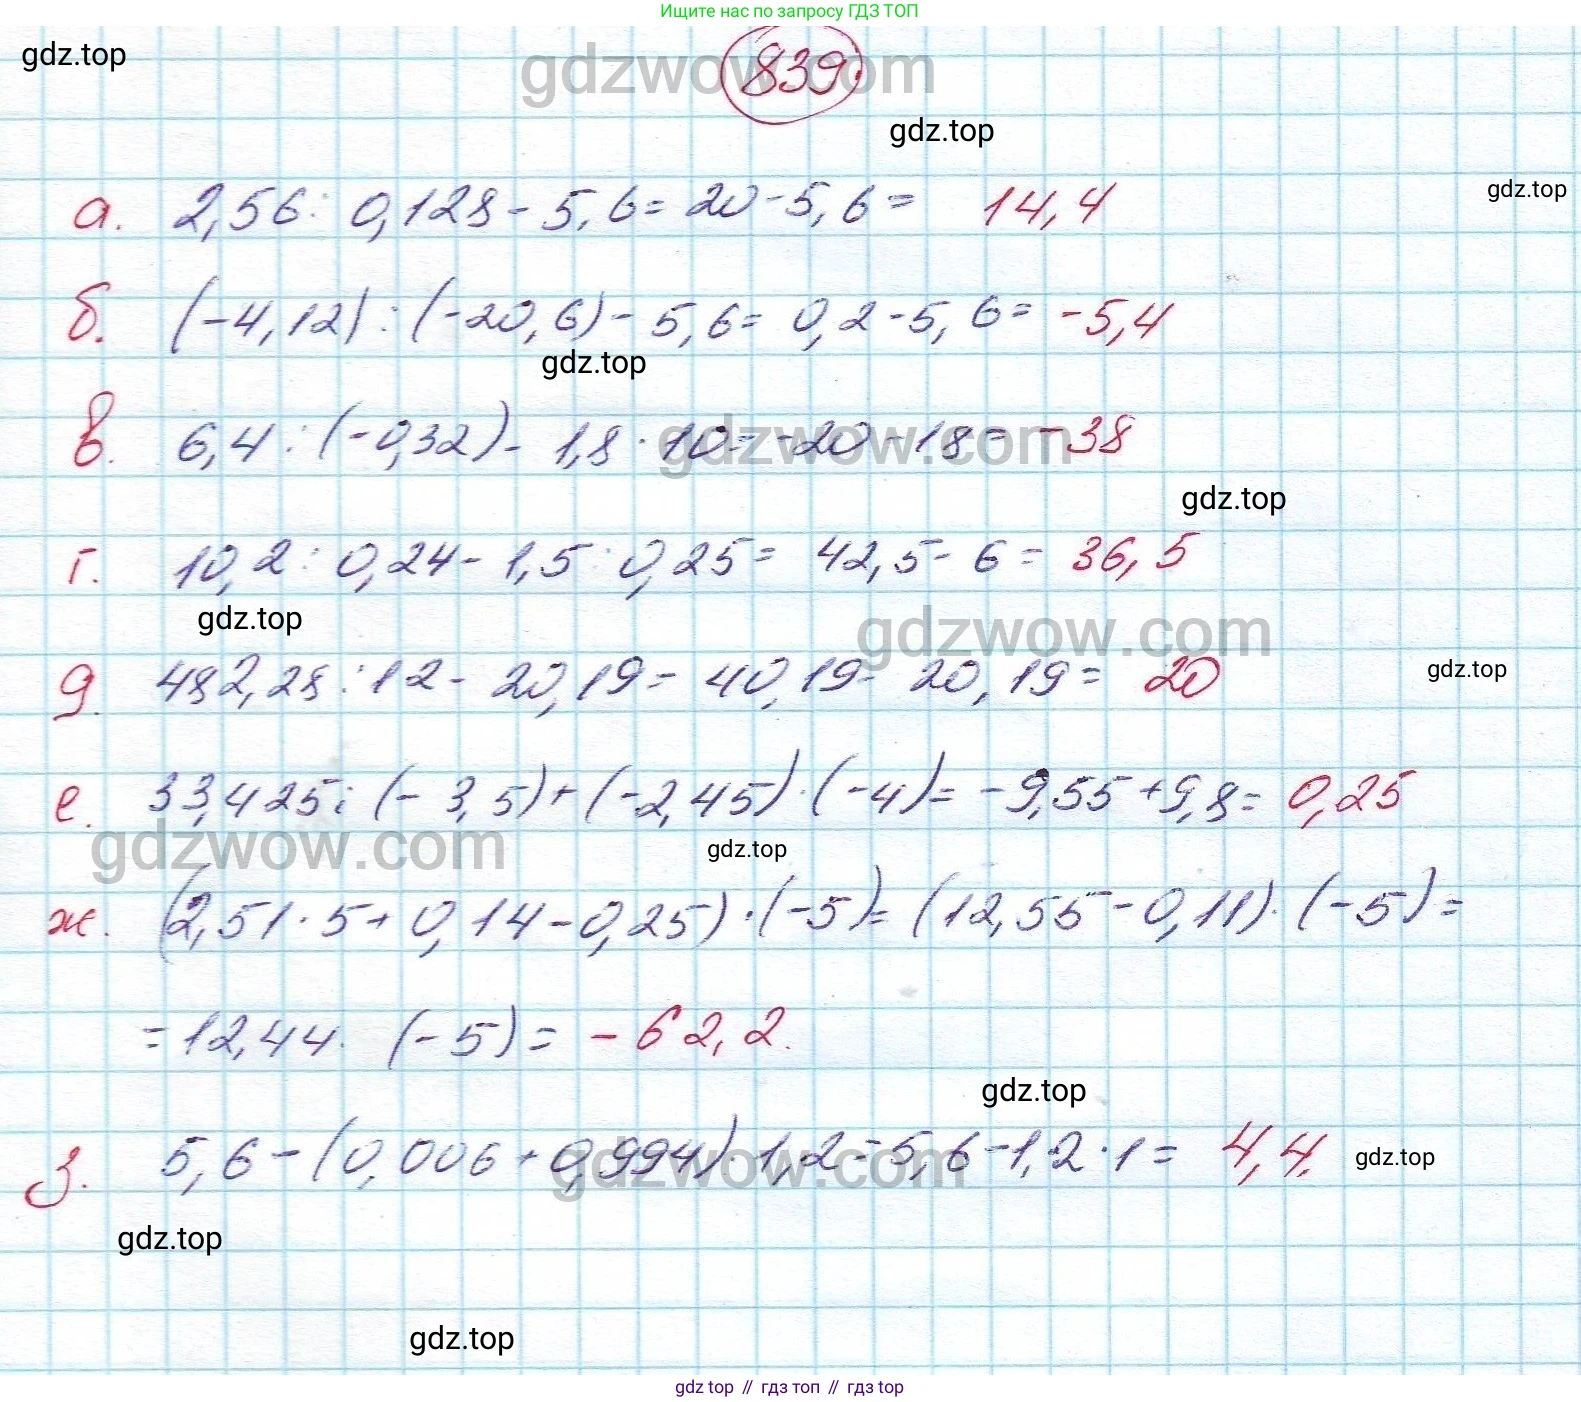 Ищите нас по запросу ГДЗ ТОП
gdz.top
gdzwow.com
839.
gdz.top
gdz.top
а. 2,56 : 0,128 - 5,6 = 20 - 5,6 = 14,4
б. (-4,12) : (-20,6) - 5,6 = 0,2 - 5,6 = -5,4
gdz.top
в. 6,4 : (-0,32) - 1,8 · 10 = -20 - 18 = -38
gdzwow.com
gdz.top
г. 10,2 : 0,24 - 1,5 : 0,25 = 42,5 - 6 = 36,5
gdz.top
gdzwow.com
д. 482,28 : 12 - 20,19 = 40,19 - 20,19 = 20
gdz.top
е. 33,425 : (-3,5) + (-2,45) · (-4) = -9,55 + 9,8 = 0,25
gdzwow.com
gdz.top
ж. (2,51 · 5 + 0,14 - 0,25) · (-5) = (12,55 - 0,11) · (-5) =
= 12,44 · (-5) = -62,2.
gdz.top
з. 5,6 - (0,006 + 0,994) · 1,2 = 5,6 - 1,2 · 1 = 4,4.
gdzwow.com
gdz.top
gdz.top
gdz.top
gdz top // гдз топ // гдз top